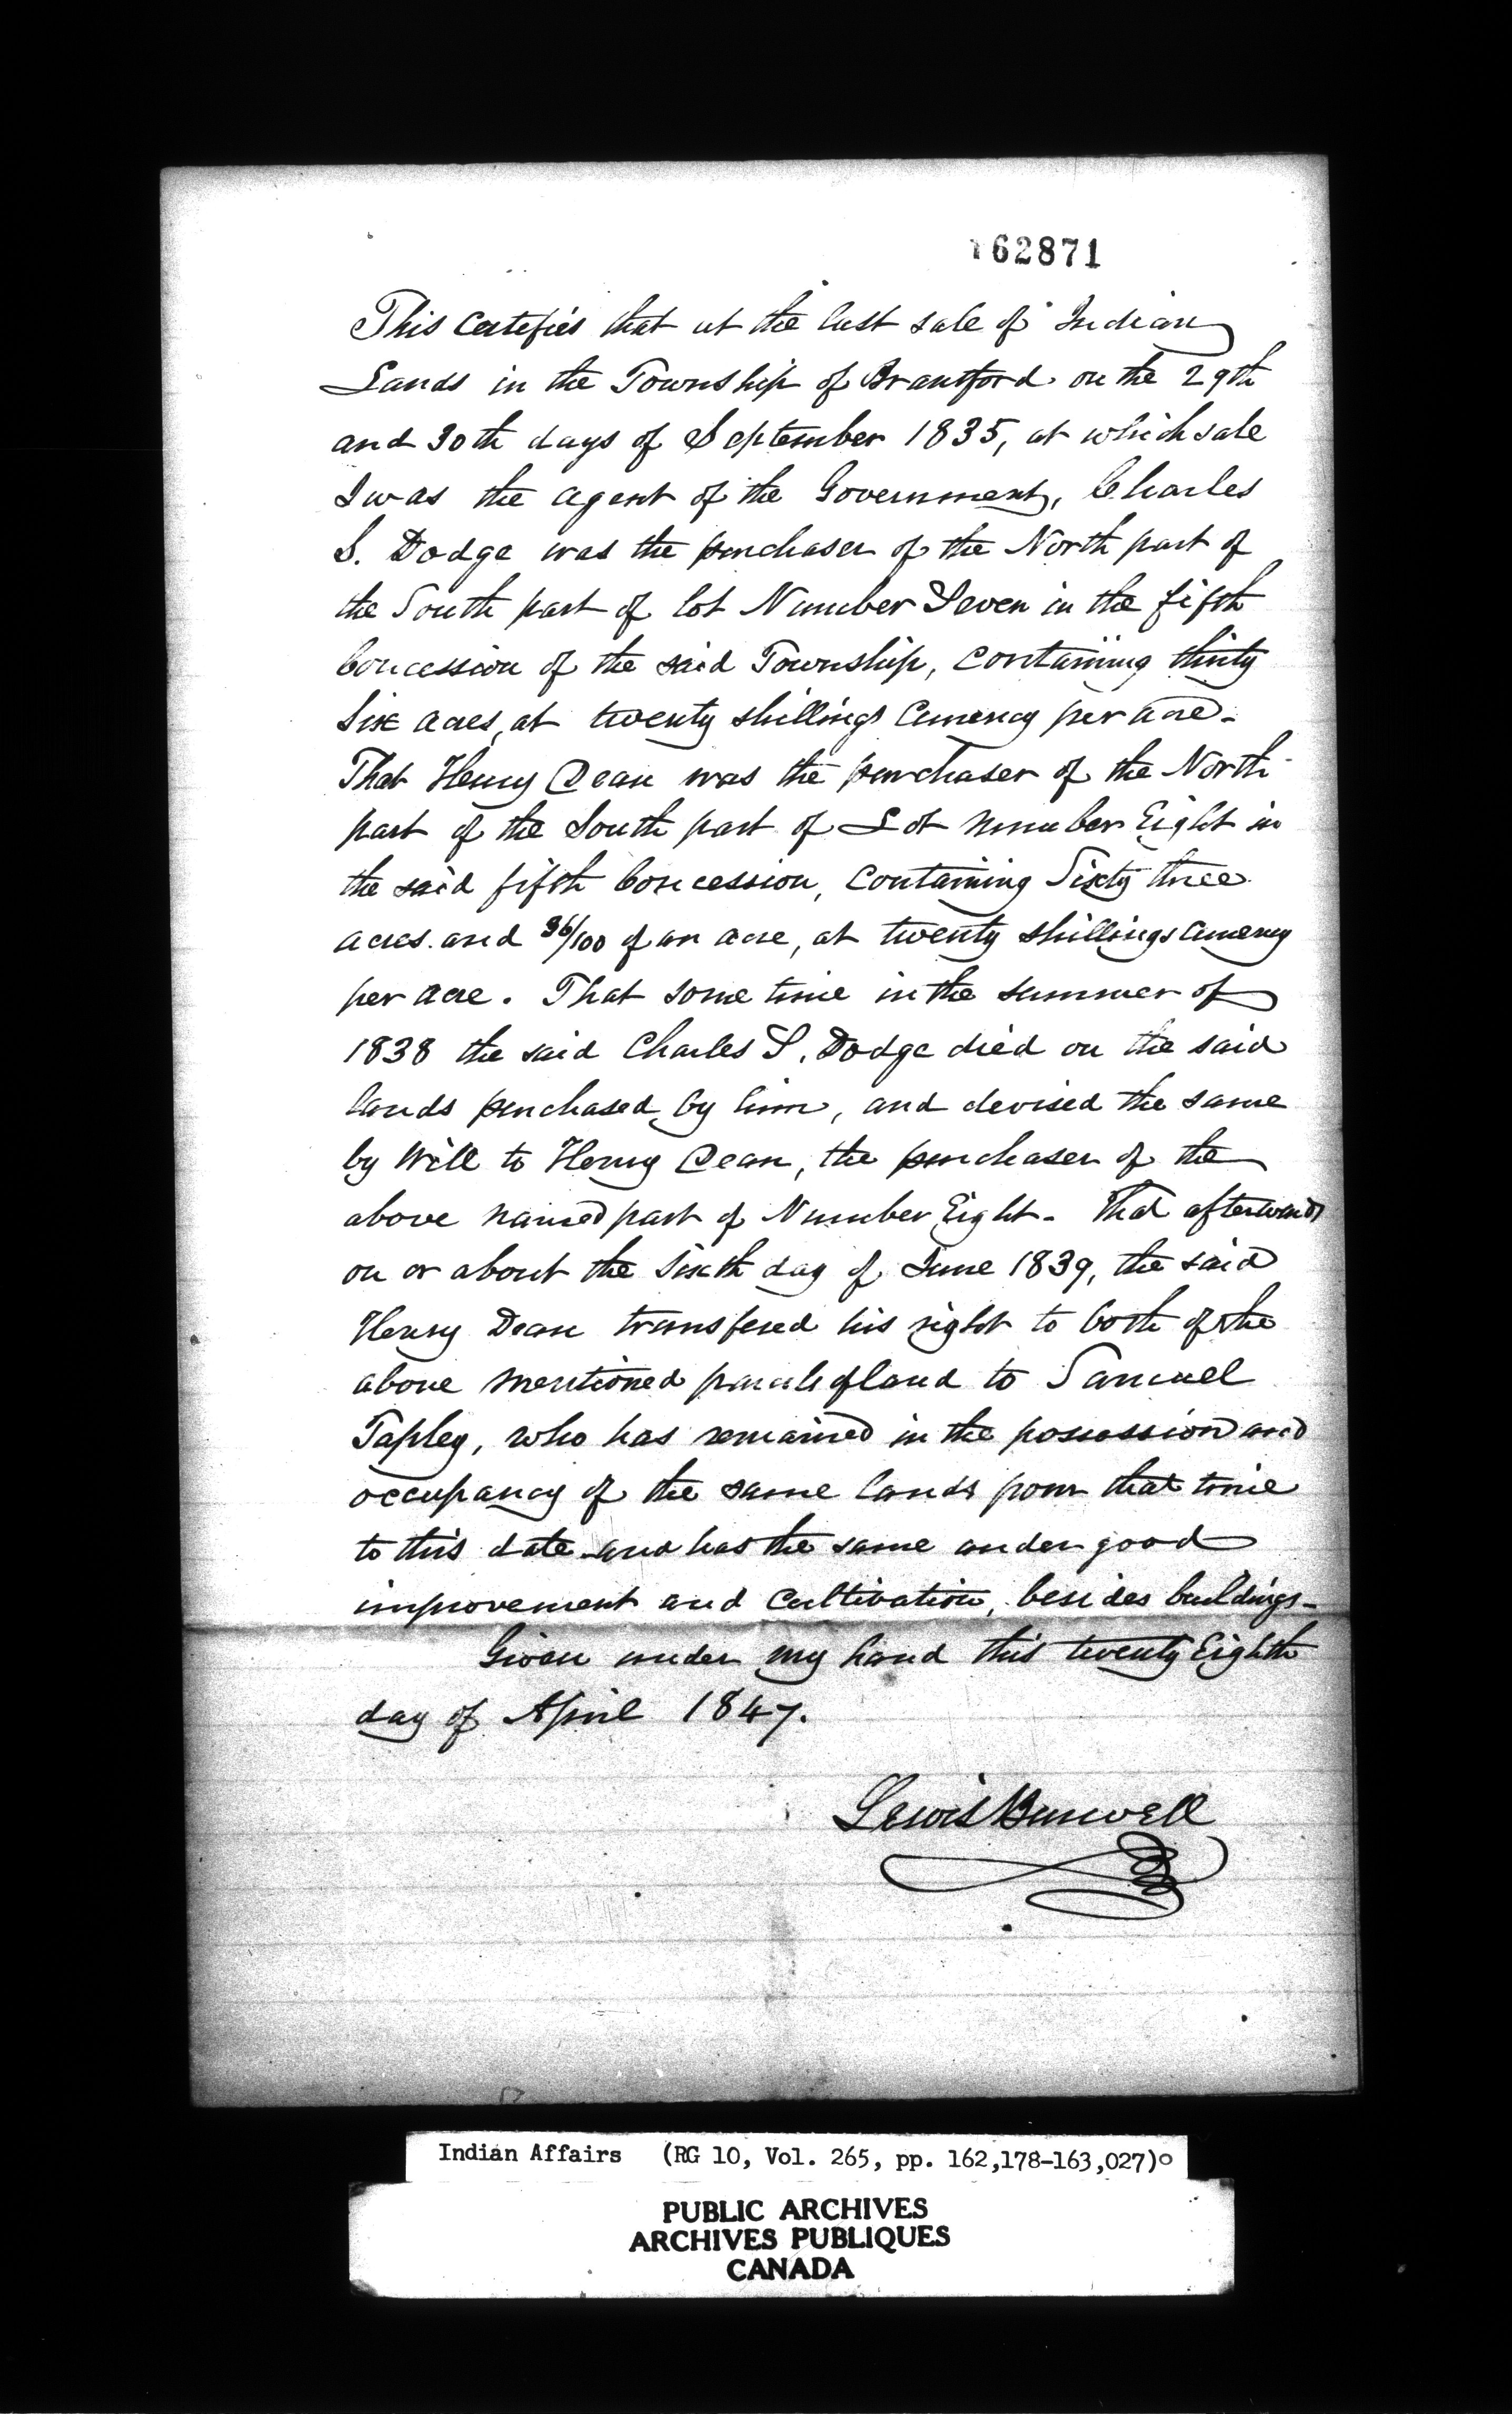 162871
This Certifies that at the last sale of Indian
Lands in the Township of Brantford on the 29th
and 30th days of September 1835, at which sale
I was the agent of the Government, Charles
S. Dodge was the purchaser of the North part of
the South part of lot Number Seven in the fifth
Concession of the said Township, Containing thirty
Six acres, at twenty shillings Currency per acre.
That Henry Dean was the purchaser of the North
part of the South part of Lot number Eight in
the said fifth Concession, Containing Sixty three
acres and 36/100 of an acre, at twenty shillings Currency
per acre. That some time in the summer of
1838 the said Charles S. Dodge died on the said
lands purchased by him, and devised the same
by Will to Henry Dean, the purchaser of the
above named part of Number Eight. That afterwards
on or about the Sixth day of June 1839, the said
Henry Dean transfered his right to both of the
above mentioned parcels of land to Samuel
Tapley, who has remained in the possession and
occupancy of the same lands from that time
to this date and has the same under good
improvement and Cultivation, besides buildings-
Given under my hand this twenty Eighth
day of April 1847.
Lewis Burwell
Indian Affairs (RG 10, Vol. 265, pp. 162,178-163,027)
PUBLIC ARCHIVES
ARCHIVES PUBLIQUES
CANADA